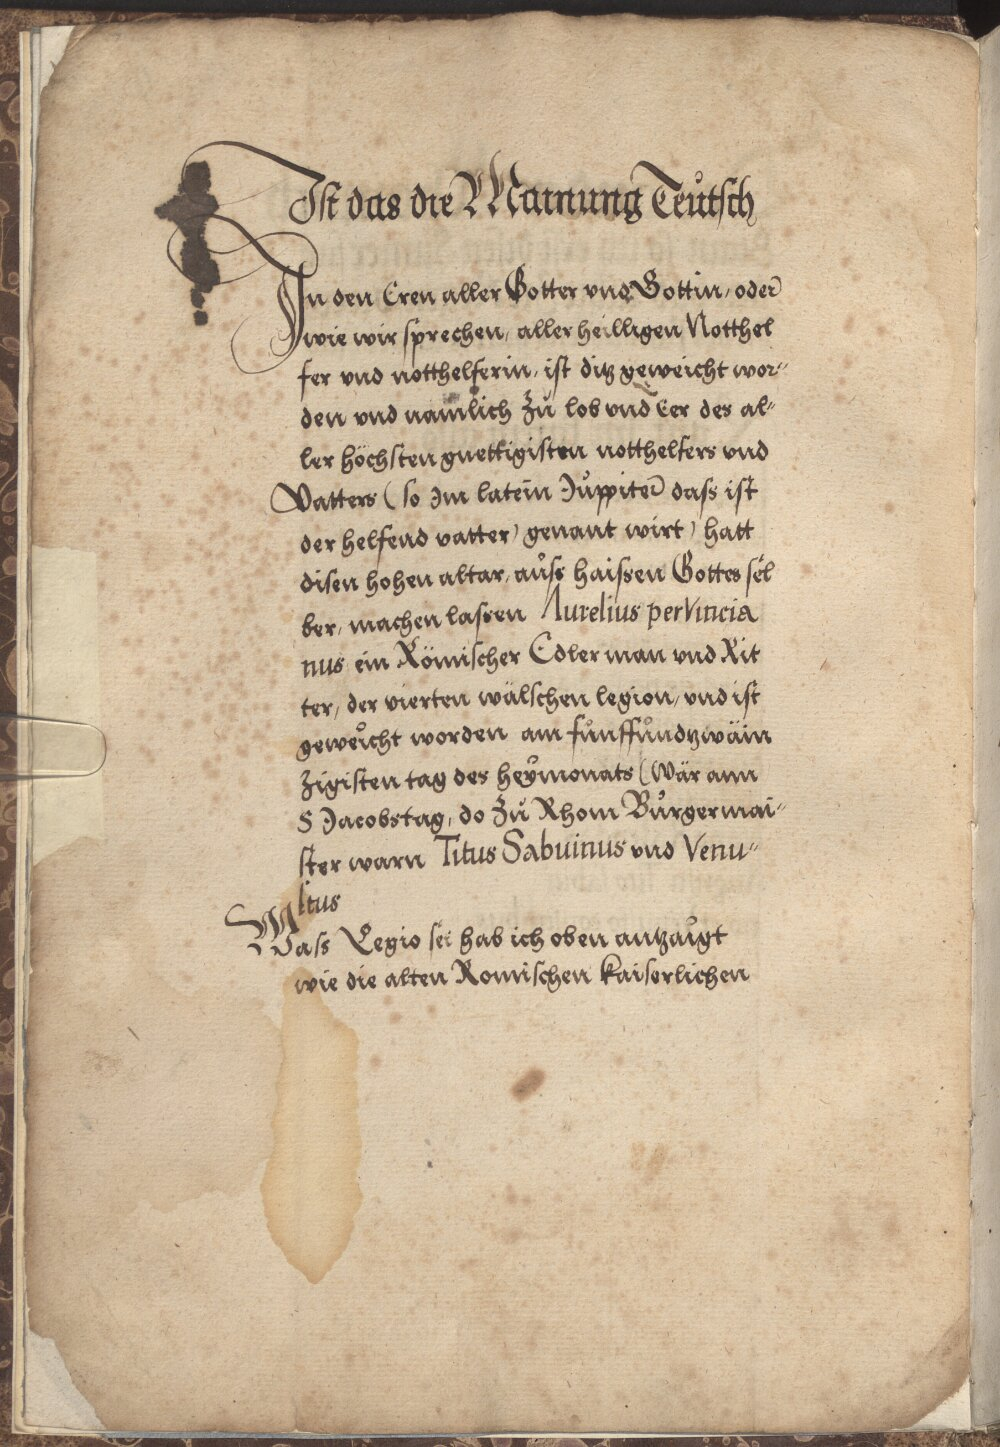 Ist das die Mainung Teutsch
In den Eren aller Götter vnd Gottin, oder
wie wir sprechen, aller heilligen Notthel
fer vnd notthelferin, ist ditz geweicht wor-
den vnd nämlich zů lob vnd Eer des al-
ler höchsten guettigisten notthelfers vnd
Vatters (so Im latein Juppiter dass ist
der helfend vatter) genant wirt) hatt
disen hohen altar, auss haissen Gottes sel
ber, machen lassen Aurelius per Vincia
nus ein Römischer Edlerman vnd Rit
ter, der vierten wälschen legion, vnd ist
geweicht worden am funffundzwäin
zigisten tag des heymonats (Wär ann
S Jacobstag, do zů Rhom Burgermai-
ster warn Titus Sabuinus vnd Venu-
stus
Wass Legio sei hab ich oben antzaigt
wie die alten Romischen kaiserlichen